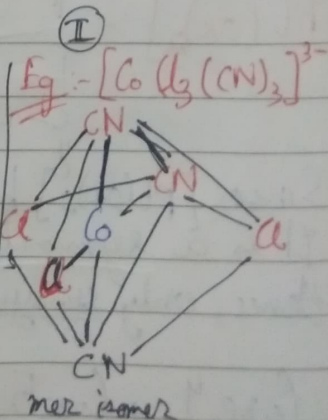 II
Eg :- [Co Cl3 (CN)3]3-
CN
CN
Cl Co Cl
Cl
CN
mer isomer